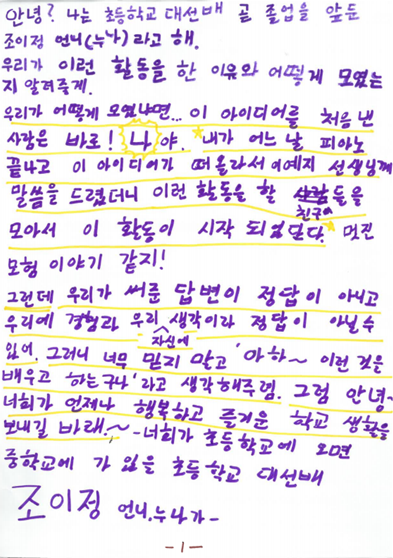 안녕? 나는 초등학교 대선배 곧 졸업을 앞둔
조이정 언니(누나)라고 해.
우리가 이런 활동을 한 이유와 어떻게 모였는
지 알려줄게.
우리가 어떻게 모였냐면... 이 아이디어를 처음 낸
사람은 바로! 나 야. ★내가 어느 날 피아노
끝나고 이 아이디어가 떠올라서 이예지 선생님께
말씀을 드렸더니 이런 활동을 할 친구들을
모아서 이 활동이 시작 되었단다.★ 멋진
모험 이야기 같지!
그런데 우리가 써준 답변이 정답이 아니고
우리에 경험과 우리 자신에 생각이라 정답이 아닐수
있어. 그러니 너무 믿지 말고 '아하~ 이런 것을
배우고 하는구나'라고 생각해주렴. 그럼 안녕~
너희가 언제나 행복하고 즐거운 학교 생활을
보내길 바래.~ -너희가 초등학교에 오면
중학교에 가 있을 초등학교 대선배
조이정 언니.누나가-
-1-